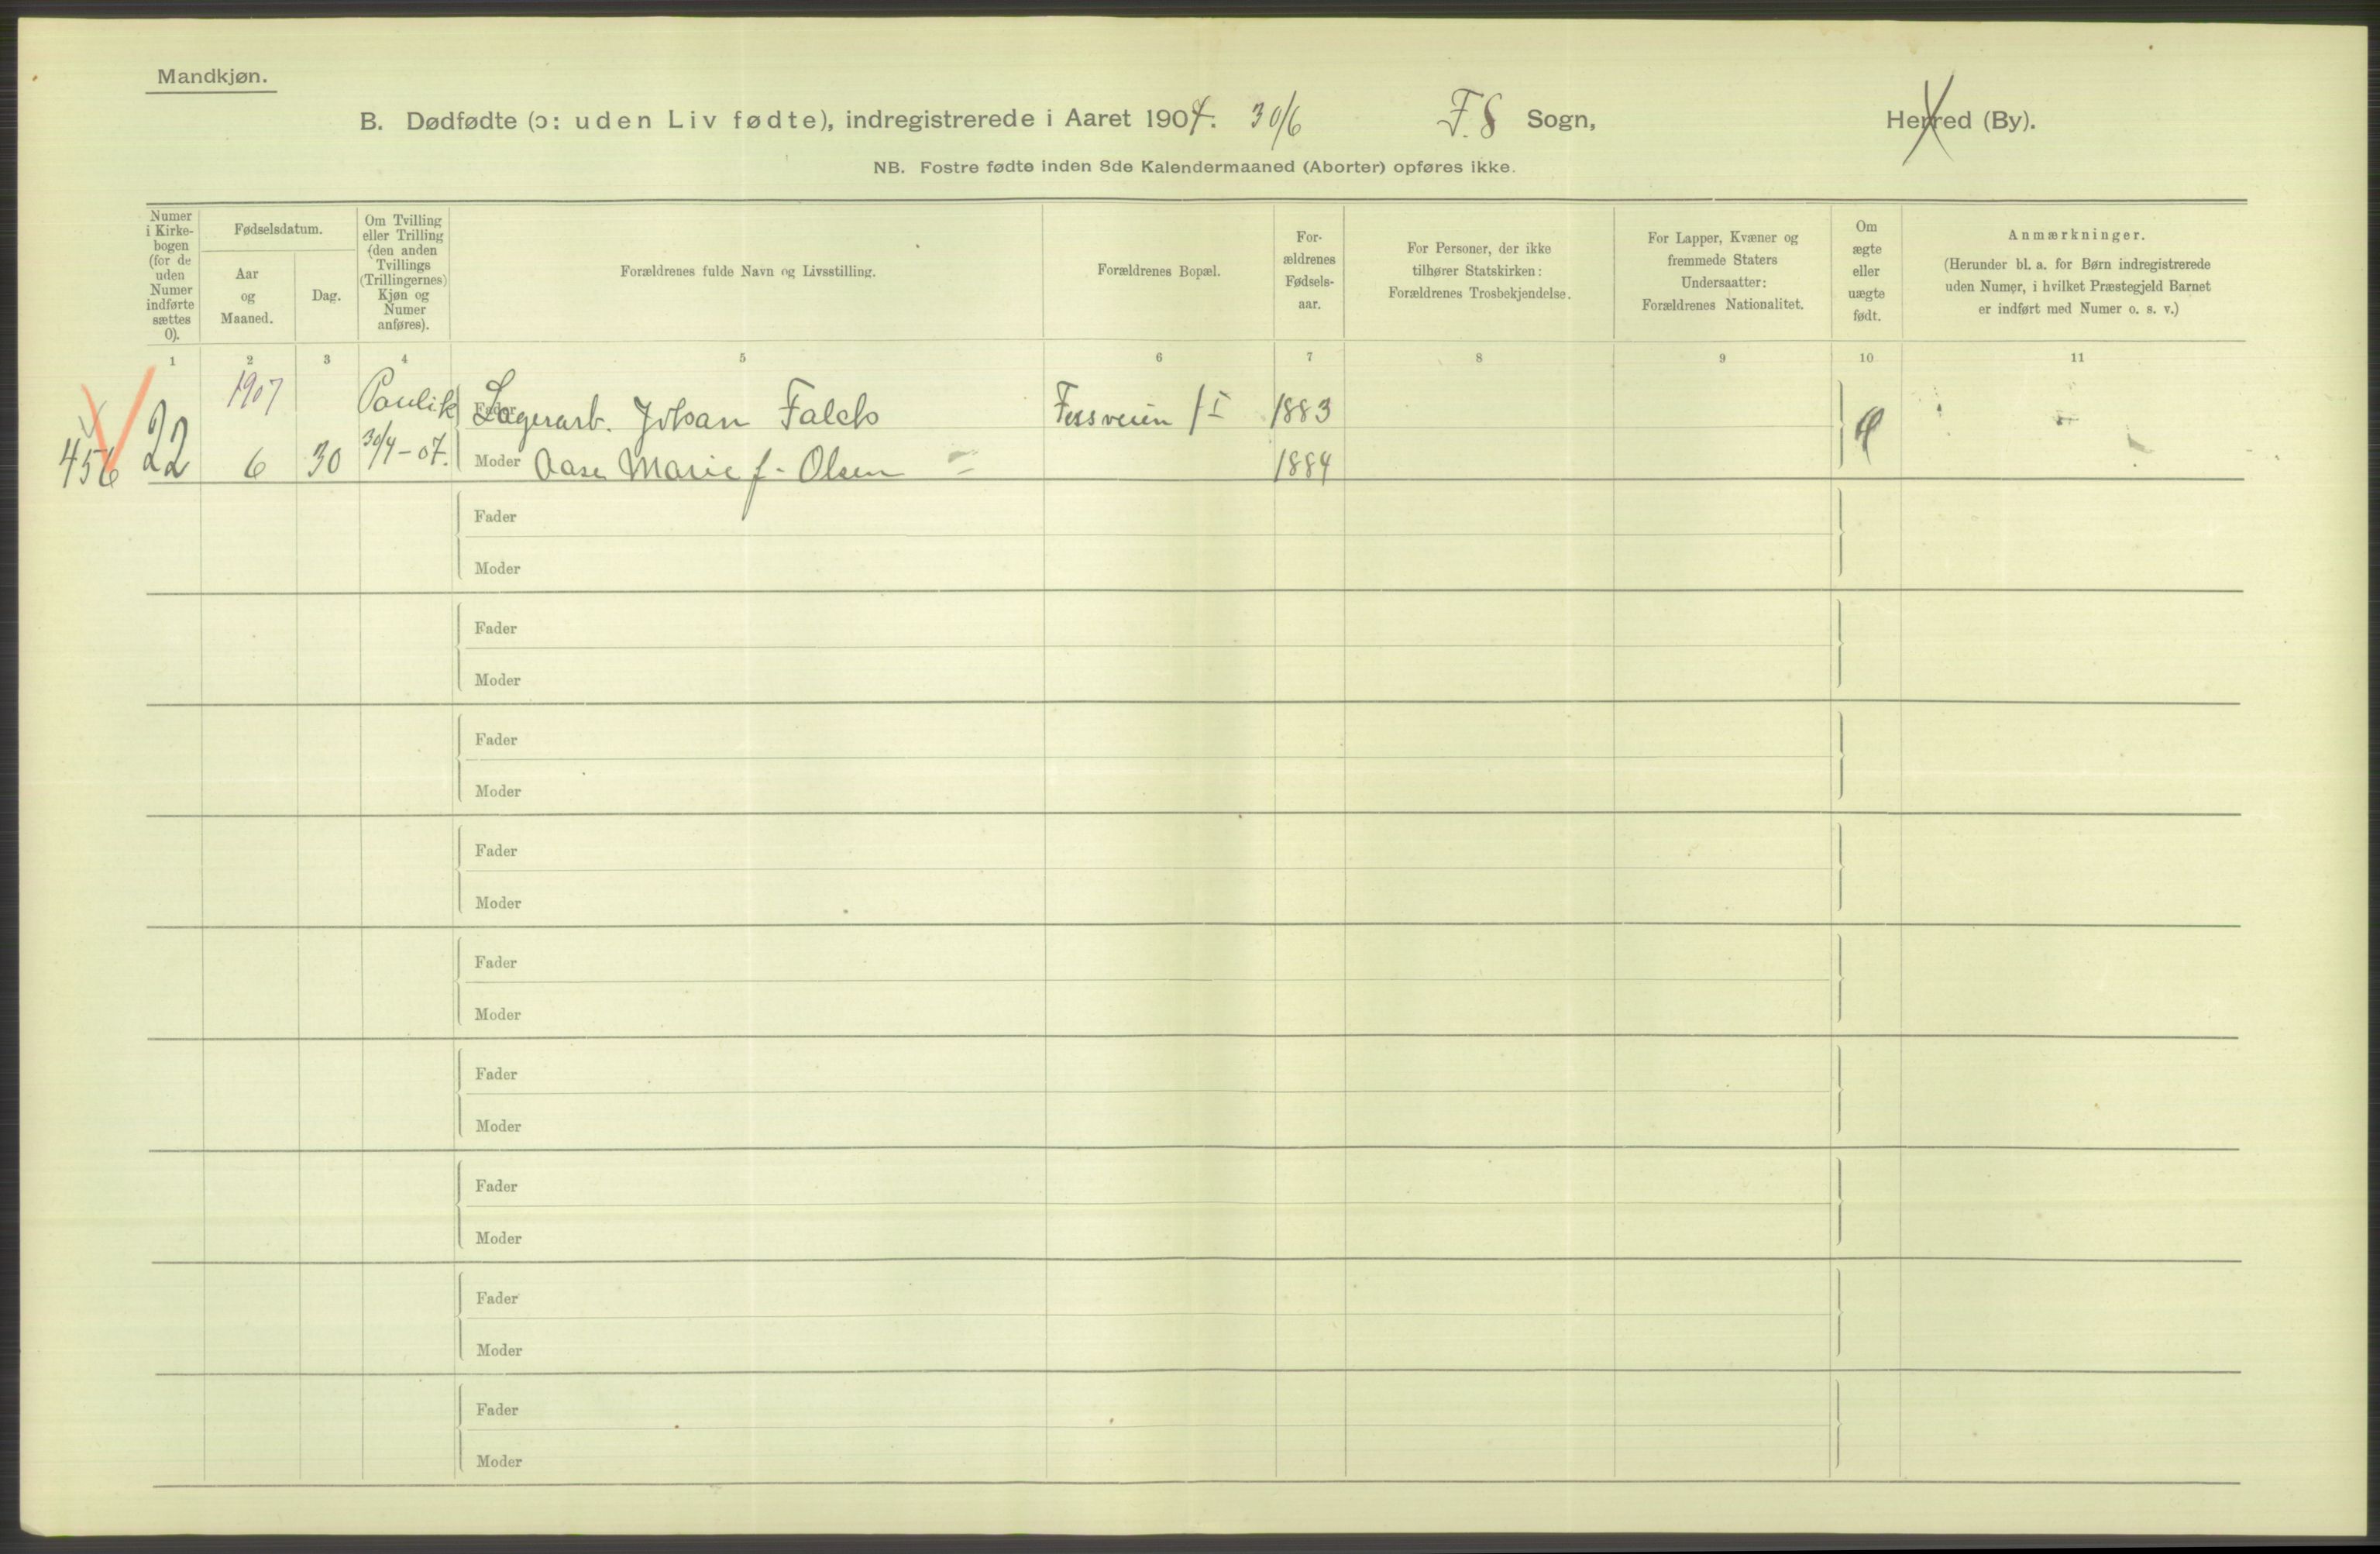 Mandkjøn.
B. Dødfødte (ɔ: uden Liv fødte), indregistrerede i Aaret 1907. 30/6 F.S Sogn, Herred (By).
NB. Fostre fødte inden 8de Kalendermaaned (Aborter) opføres ikke.
Numer i Kirke-bogen (for de uden Numer indførte sættes 0).
Fødselsdatum.
Aar og Maaned.
Dag.
Om Tvilling eller Trilling (den anden Tvillings (Trillingernes) Kjøn og Numer anføres).
Forældrenes fulde Navn og Livsstilling.
Forældrenes Bopæl.
For-ældrenes Fødsels-aar.
For Personer, der ikke tilhører Statskirken: Forældrenes Trosbekjendelse.
For Lapper, Kvæner og fremmede Staters Undersaatter: Forældrenes Nationalitet.
Om ægte eller uægte født.
Anmærkninger.
(Herunder bl. a. for Børn indregistrerede uden Numer, i hvilket Præstegjeld Barnet er indført med Numer o. s. v.)
1 2 3 4 5 6 7 8 9 10 11
1907 Fader Lagerarb. Johan Falch 1883
456 22 6 30 -07. Moder Aase Marie f. Olsen 1884
Fader
Moder
Fader
Moder
Fader
Moder
Fader
Moder
Fader
Moder
Fader
Moder
Fader
Moder
Fader
Moder
Fader
Moder